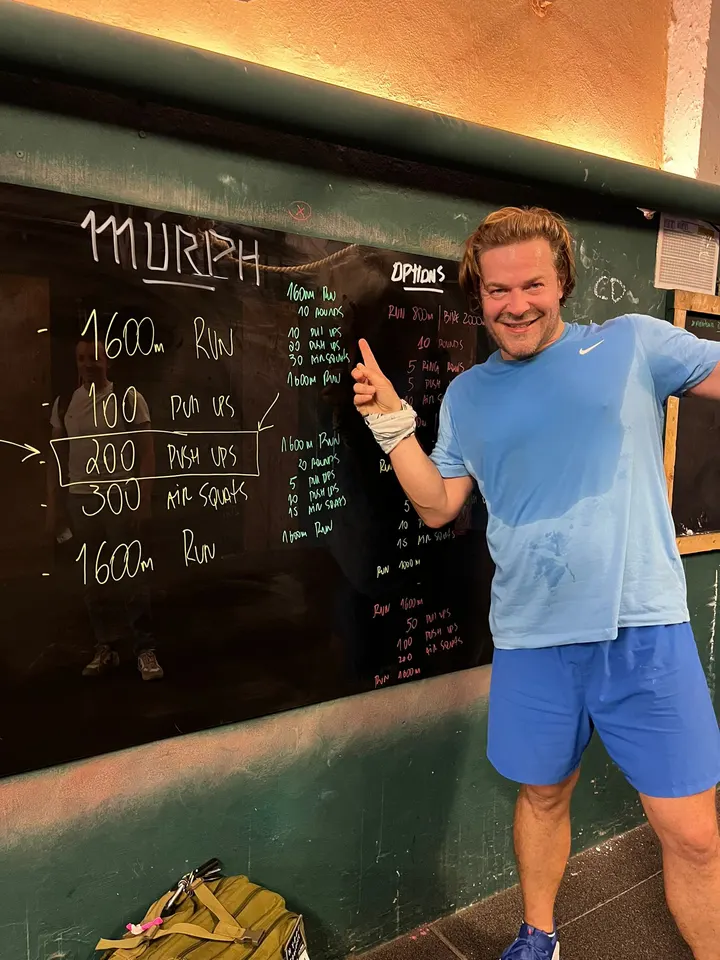 MURPH
- 1600m RUN
- 100 PULL UPS
- 200 PUSH UPS
- 300 AIR SQUATS
- 1600m RUN
1600m RUN
10 ROUNDS
10 PULL UPS
20 PUSH UPS
30 AIR SQUATS
1600m RUN
1600m RUN
20 ROUNDS
5 PULL UPS
10 PUSH UPS
15 AIR SQUATS
1600m RUN
OPTIONS
RUN 800m BIKE 2000
10 ROUNDS
5 RING ROWS
5 PUSH
AIR
RUN
5
10
15 AIR SQUATS
RUN 1000m
-
RUN 1600m
50 PULL UPS
100 PUSH UPS
200 AIR SQUATS
RUN 1600m
CD